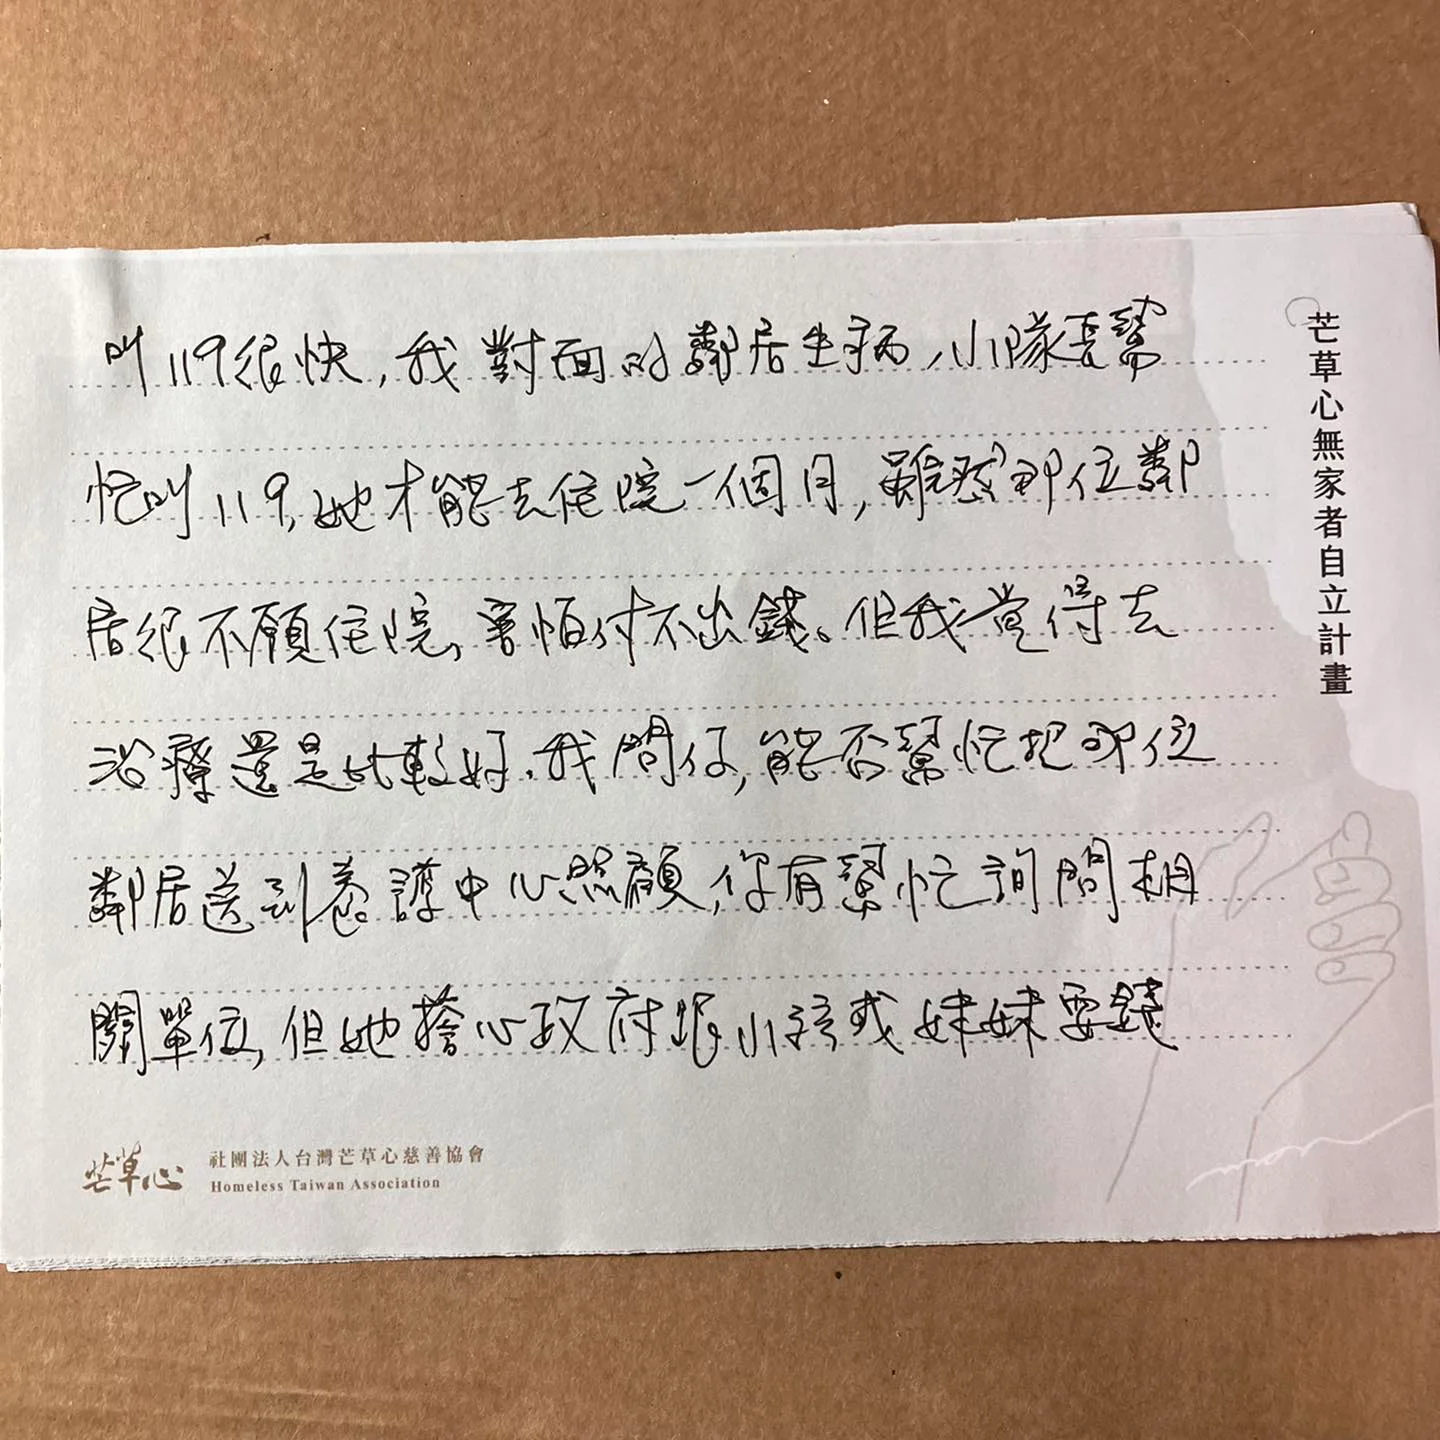 芒草心無家者自立計畫
叫119很快,我對面的鄰居生病,小隊長幫
忙叫119,她才能去住院一個月,雖然那位鄰
居很不願住院,害怕付不出錢。但我覺得去
治療還是比較好,我問你,能否幫忙把那位
鄰居送到養護中心照顧,你有幫忙詢問相
關單位,但她擔心政府跟小孩或妹妹要錢
芒草心
社團法人台灣芒草心慈善協會
Homeless Taiwan Association